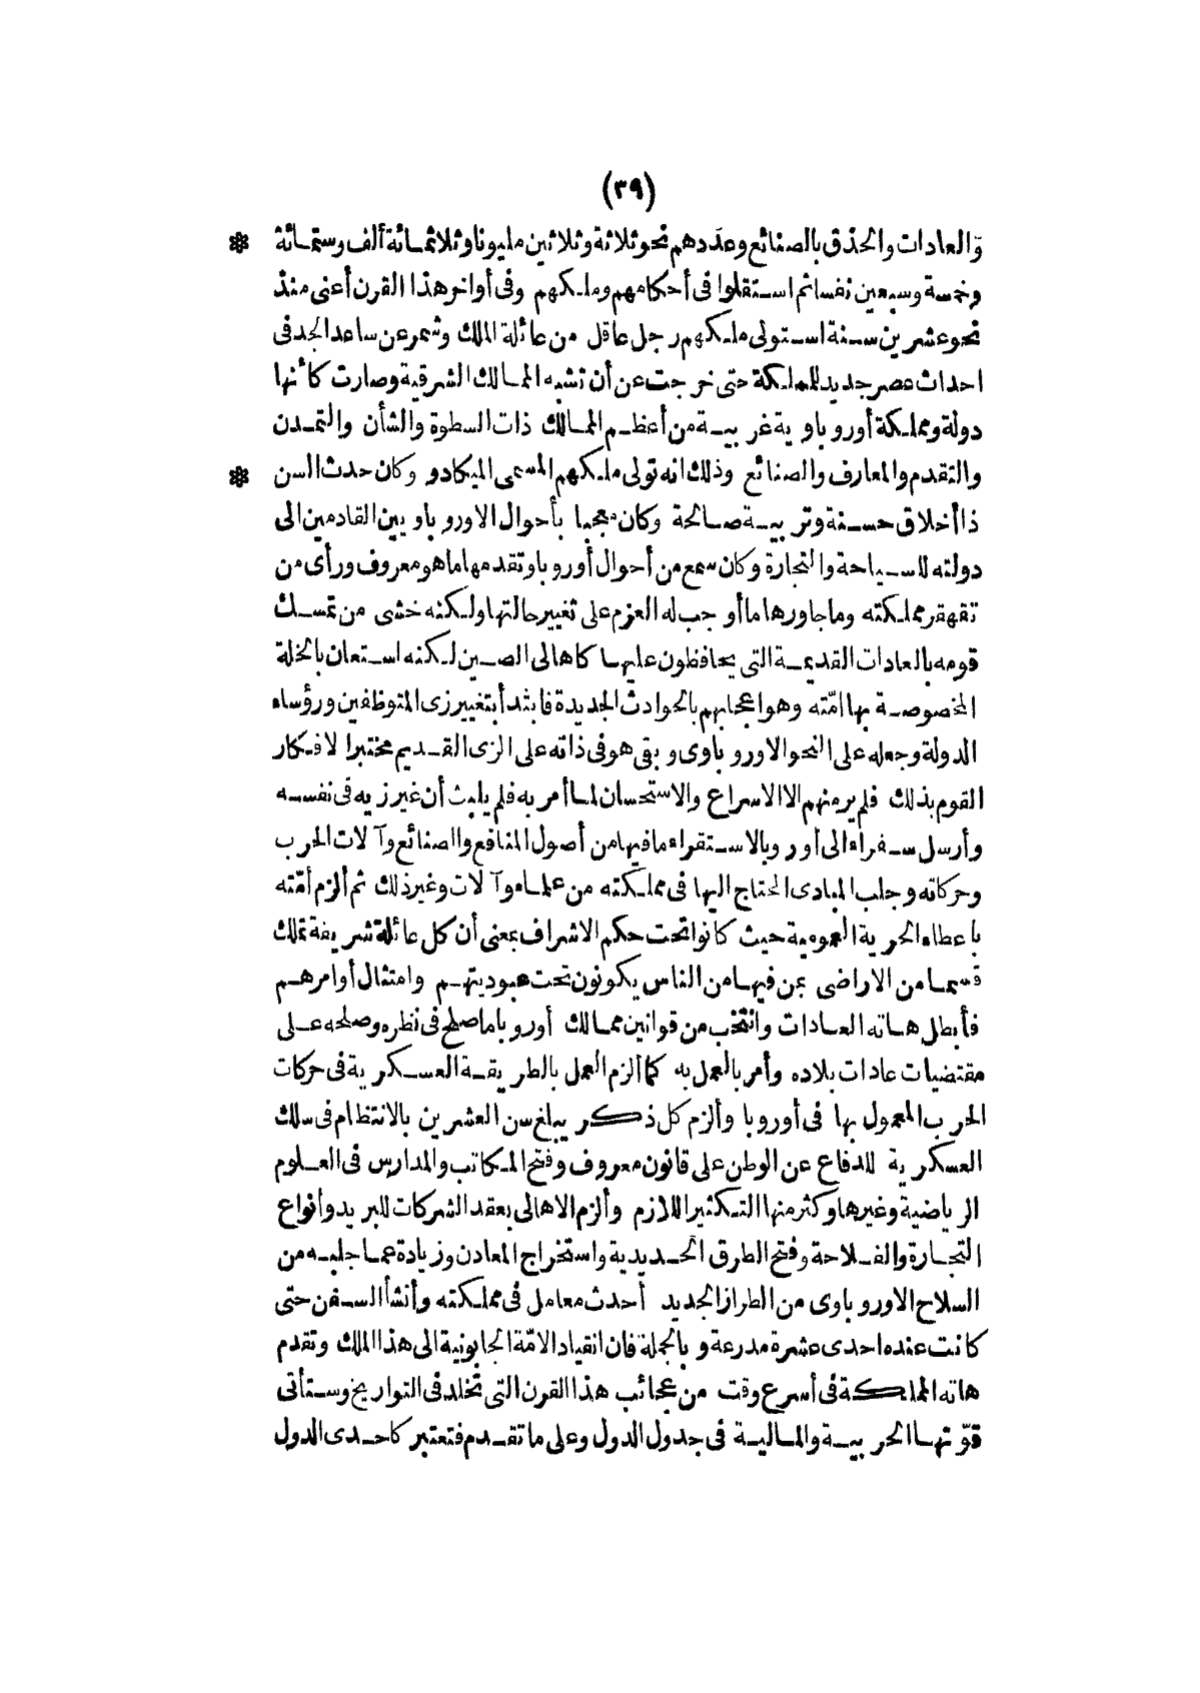 (٣٩)
والعادات والحذق بالصنائع وعددهم نحو ثلاثة وثلاثين مليونا وثلاثمائة ألف وستمائة *
وخمسة وسبعين نفسا ثم استقلوا فى أحكامهم وملكهم وفى أواخر هذا القرن أعنى منذ
نحو عشرين سنة استولى ملكهم رجل عاقل من عائلة الملك وشمر عن ساعد الجد فى
احداث عصر جديد للمملكة حتى خرجت عن أن تشبه الممالك الشرقية وصارت كأنها
دولة ومملكة أوروباوية غربية من أعظم الممالك ذات السطوة والشأن والتمدن
والتقدم والمعارف والصنائع وذلك انه تولى ملكهم المسمى الميكادو وكان حدث السن *
ذا أخلاق حسنة وتربية صالحة وكان معجبا بأحوال الاوروباويين القادمين الى
دولته للسياحة والتجارة وكان سمع من أحوال أوروبا وتقدمها ما هو معروف ورأى من
تقهقر مملكته وما جاورها ما أوجب له العزم على تغيير حالتها ولكنه خشى من تمسك
قومه بالعادات القديمة التى يحافظون عليها كاهالى الصين لكنه استعان بالخلة
المخصوصة بها امّته وهو اعجابهم بالحوادث الجديدة فابتدأ بتغيير زى المتوظفين ورؤساء
الدولة وجعله على النحو الاوروباوى وبقى هو فى ذاته على الزى القديم مختبرا لافكار
القوم بذلك فلم ير منهم الا الاسراع والاستحسان لما أمر به فلم يلبث أن غير زيه فى نفسه
وأرسل سفراء الى أوروبا لاستقراء ما فيها من أصول المنافع والصنائع وآلات الحرب
وحركاته وجلب المبادى المحتاج اليها فى مملكته من علماء وآلات وغير ذلك ثم ألزم أمّته
باعطاء الحرية العمومية حيث كانوا تحت حكم الاشراف بمعنى أن كل عائلة شريفة تملك
قسما من الاراضى بمن فيها من الناس يكونون تحت عبوديتهم وامتثال أوامرهم
فأبطل هاته العادات وانتخب من قوانين ممالك أوروبا ما صلح فى نظره وصلحه على
مقتضيات عادات بلاده وأمر بالعمل به كما ألزم العمل بالطريقة العسكرية فى حركات
الحرب المعمول بها فى أوروبا وألزم كل ذكر يبلغ سن العشرين بالانتظام فى سلك
العسكرية للدفاع عن الوطن على قانون معروف وفتح المكاتب والمدارس فى العلوم
الرياضية وغيرها وكثر منها التكثير اللازم وألزم الاهالى بعقد الشركات للبريد وأنواع
التجارة والفلاحة وفتح الطرق الحديدية واستخراج المعادن وزيادة عما جلبه من
السلاح الاوروباوى من الطراز الجديد أحدث معامل فى مملكته وأنشأ السفن حتى
كانت عنده احدى عشرة مدرعة وبالجملة فان انقياد الامّة الجابونية الى هذا الملك وتقدم
هاته المملكة فى أسرع وقت من عجائب هذا القرن التى تخلد فى التواريخ وستأتى
قوّتها الحربية والمالية فى جدول الدول وعلى ما تقدم فتعتبر كاحدى الدول